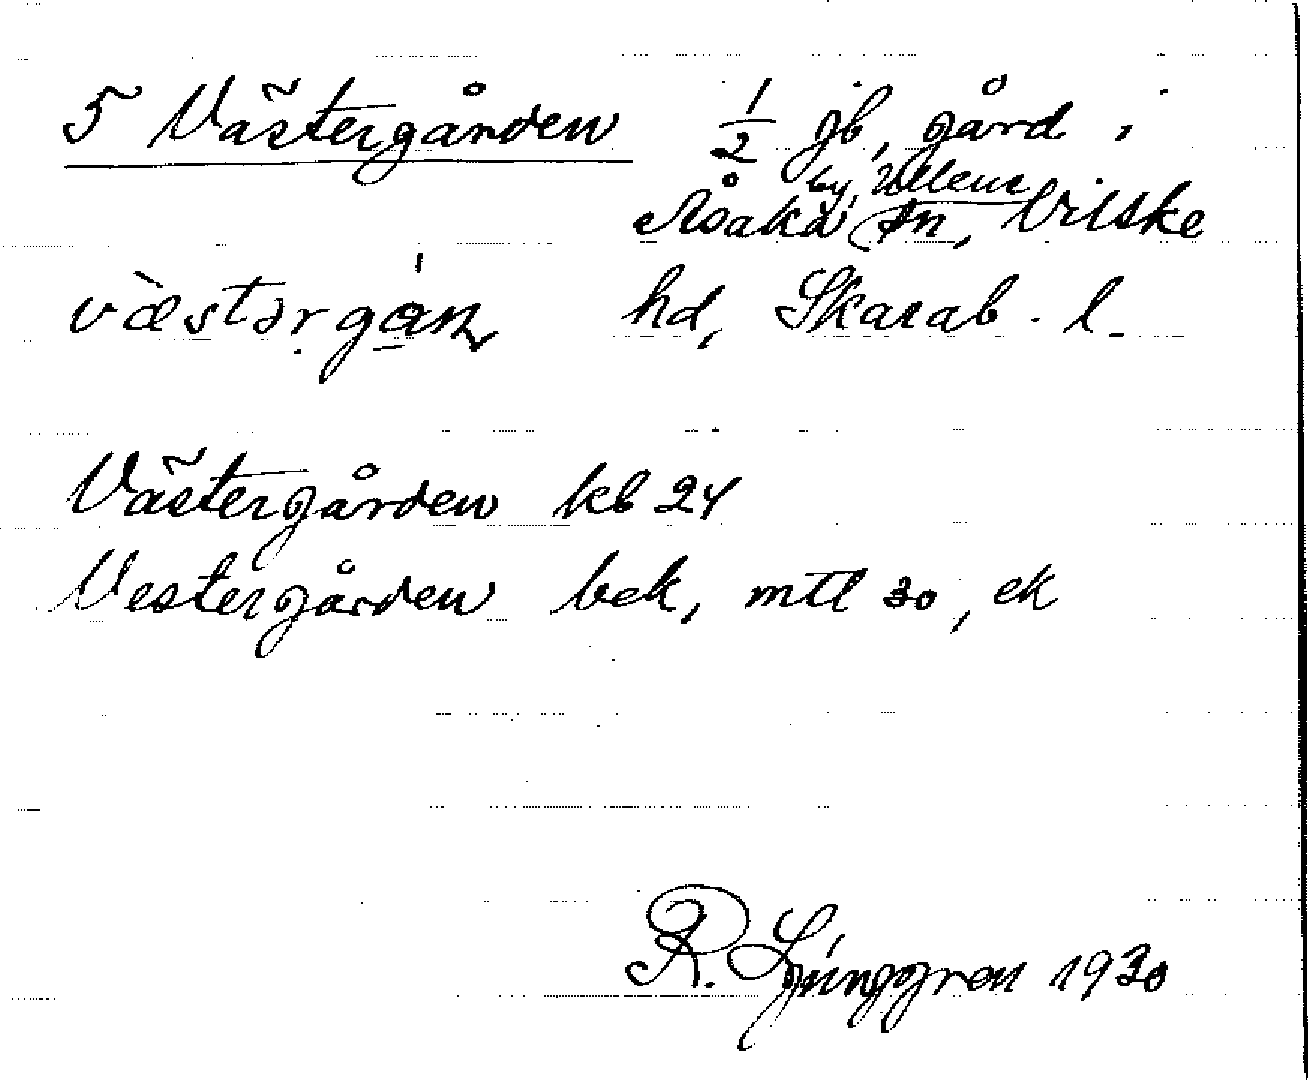 5 Västergården 1/2 jb, gård i
by, Ullene
Åsaka sn, Vilske
væstərgán hd, Skarab. l.
Västergården kb 24
Vestergården bek, mtl 30, ek
R. Ljunggren 1930